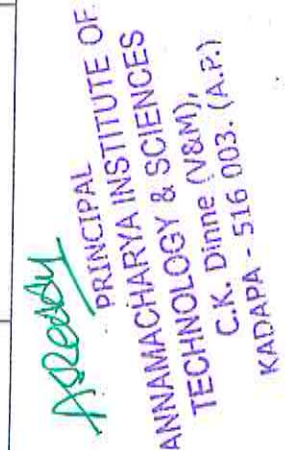 ASReddy
PRINCIPAL
ANNAMACHARYA INSTITUTE OF
TECHNOLOGY & SCIENCES
C.K. Dinne (V&M),
KADAPA - 516 003. (A.P.)